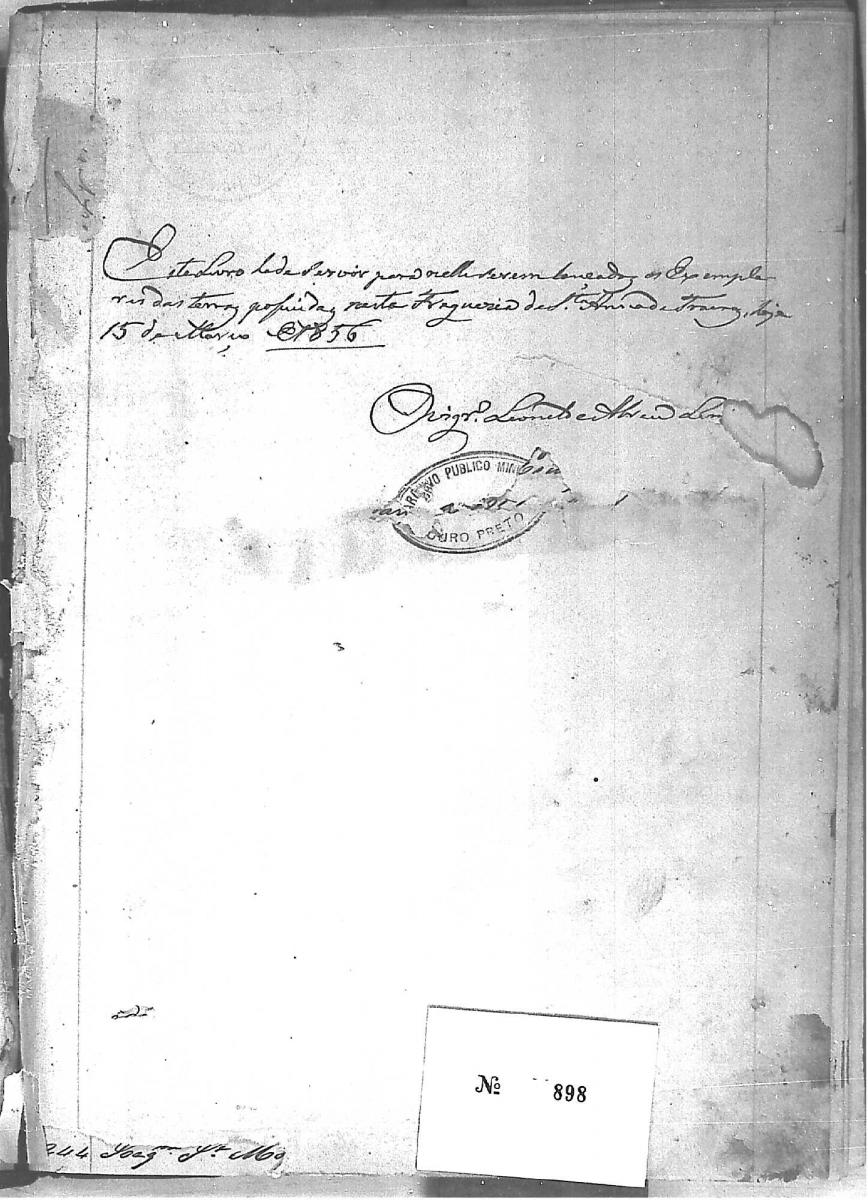 Este Livro hade servir para nelle serem lançados os Exempla
res das terras possuidas nesta Freguezia de S.ta Anna de Traíras, hoje
15 de Março de 1856
O Vigr.o Leonel de Abreu Lima
ARCHIVO PUBLICO MIN
OURO PRETO
No 898
244 Joaq.m